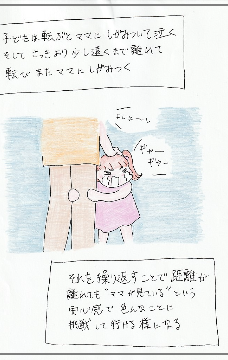 子どもは転ぶとママに しがみついて泣く
そして さっきより少し遠くまで離れて
転び またママに しがみつく
よしよし〜
ギャー
ギャー
それを繰り返すことで距離が
離れても"ママが見ている"という
安心感で 色んなことに
挑戦して行ける様になる